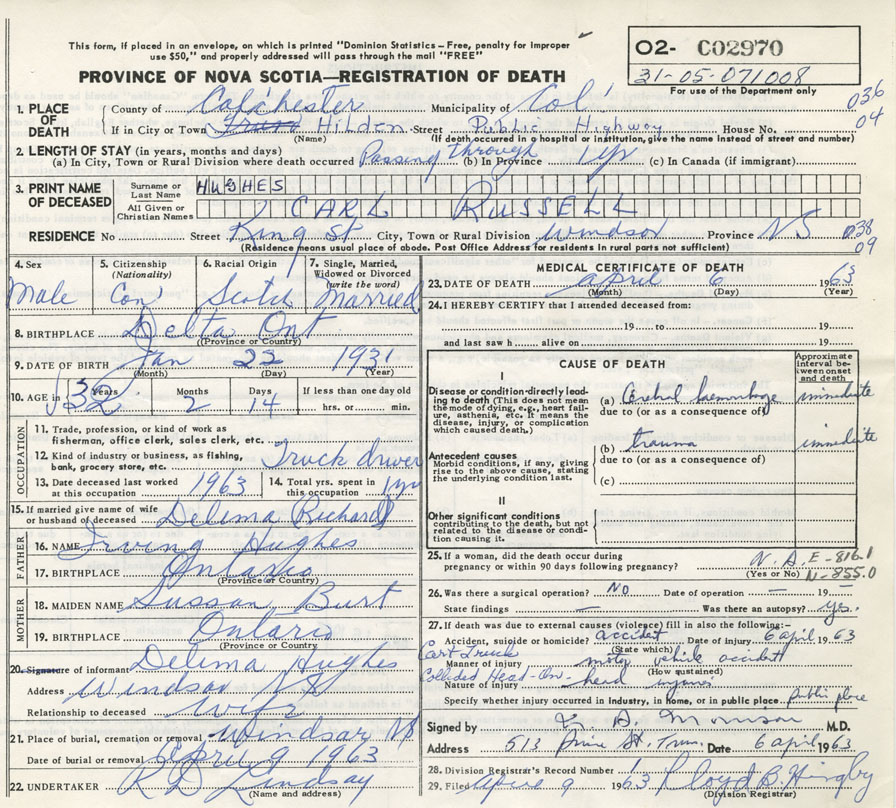 This form, if placed in an envelope, on which is printed "Dominion Statistics – Free, penalty for improper
use $50," and properly addressed will pass through the mail "FREE"
PROVINCE OF NOVA SCOTIA—REGISTRATION OF DEATH
O2- C02970
31-05-071008
For use of the Department only
1. PLACE OF DEATH
County of Colchester Municipality of Col' 036
If in City or Town Truro Hilden Street Public Highway House No. 04
(Name) (If death occurred in a hospital or institution, give the name instead of street and number)
2. LENGTH OF STAY (in years, months and days)
(a) In City, Town or Rural Division where death occurred Passing through (b) In Province 1 yr (c) In Canada (if immigrant)
3. PRINT NAME OF DECEASED
Surname or Last Name HUGHES
All Given or Christian Names CARL RUSSELL
RESIDENCE No Street King St City, Town or Rural Division Windsor Province NS 038
(Residence means usual place of abode. Post Office Address for residents in rural parts not sufficient) 09
4. Sex
Male
5. Citizenship (Nationality)
Can'
6. Racial Origin
Scotch
7. Single, Married, Widowed or Divorced (write the word)
Married
8. BIRTHPLACE Delta Ont
(Province or Country)
9. DATE OF BIRTH Jan 22 1931
(Month) (Day) (Year)
10. AGE in Years 32 Months 2 Days 14 If less than one day old
hrs. or min.
OCCUPATION
11. Trade, profession, or kind of work as
fisherman, office clerk, sales clerk, etc.
12. Kind of industry or business, as fishing,
bank, grocery store, etc. Truck driver
13. Date deceased last worked at this occupation 1963
14. Total yrs. spent in this occupation 1 yr
15. If married give name of wife
or husband of deceased Delima Richard
FATHER
16. NAME Irving Hughes
17. BIRTHPLACE Ontario
(Province or Country)
MOTHER
18. MAIDEN NAME Sussan Burt
19. BIRTHPLACE Ontario
(Province or Country
20. Signature of informant Delima Hughes
Address Windsor NS
Relationship to deceased Wife
21. Place of burial, cremation or removal Windsor NS
Date of burial or removal April 9 1963
22. UNDERTAKER Lindsay
(Name and address)
MEDICAL CERTIFICATE OF DEATH
23. DATE OF DEATH April 6 1963
(Month) (Day) (Year)
24. I HEREBY CERTIFY that I attended deceased from:
19 to 19
and last saw h alive on 19
CAUSE OF DEATH
Approximate interval between onset and death
I
Disease or condition directly leading to death (This does not mean the mode of dying, e.g., heart failure, asthenia, etc. It means the disease, injury, or complication which caused death.)
(a) Cerebral haemorrhage immediate
due to (or as a consequence of)
(b) trauma immediate
due to (or as a consequence of)
Antecedent causes
Morbid conditions, if any, giving rise to the above cause, stating the underlying condition last.
(c)
II
Other significant conditions
contributing to the death, but not related to the disease or condition causing it.
25. If a woman, did the death occur during
pregnancy or within 90 days following pregnancy? N.A. E-816.1
(Yes or No) N-855.0
26. Was there a surgical operation? NO Date of operation — 19 —
State findings — Was there an autopsy? yes.
27. If death was due to external causes (violence) fill in also the following:-
Accident, suicide or homicide? accident Date of injury 6 april 1963
(State which)
Manner of injury motor vehicle accident
(How sustained)
Collided Head-On
Nature of injury head injuries
Specify whether injury occurred in Industry, in home, or in public place public place
Signed by M.D.
Address 513 Prince St. Truro Date 6 april 1963
28. Division Registrar's Record Number 1
29. Filed April 9 1963 Lloyd B.
(Division Registrar)